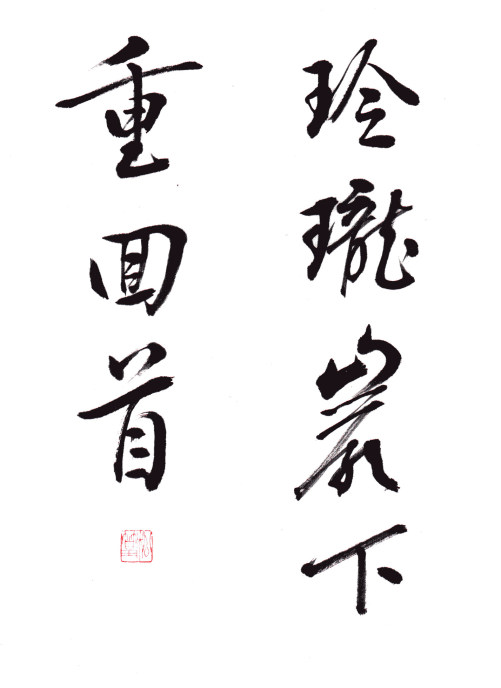 玲瓏巖下
重回首